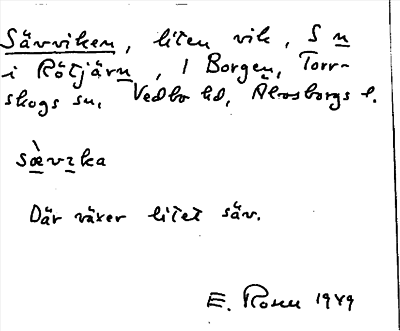 Sävviken, liten vik, S n
i Rötjärn, 1 Borgen, Torr-
skogs sn, Vedbo hd, Älvsborgs l.
sæ̀vɪka
Där växer litet säv.
E. Rosell 1949